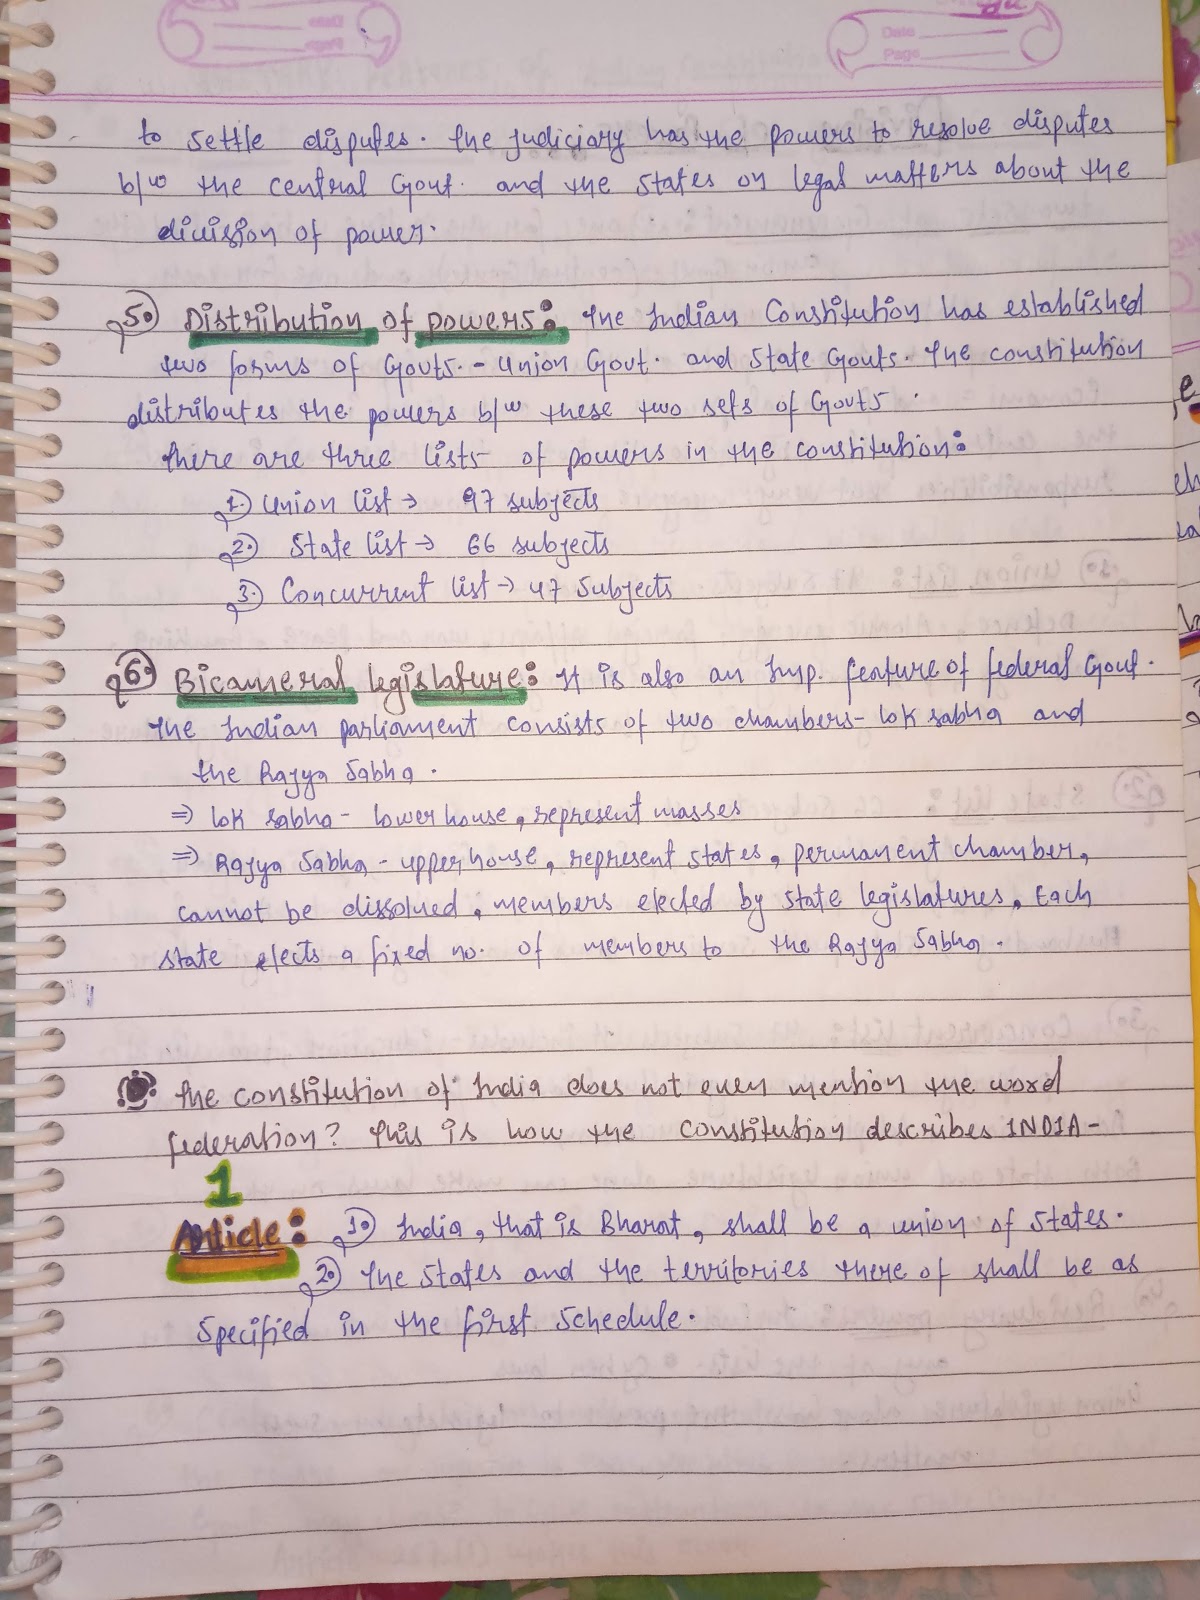 Date
Page
to settle disputes. The judiciary has the powers to resolve disputes
b/w the central Govt. and the states on legal matters about the
division of power.
5. Distribution of powers: The Indian Constitution has established
two forms of Govts. - Union Govt. and State Govts. The constitution
distributes the powers b/w these two sets of Govts.
There are three lists of powers in the constitution:
1. Union list → 97 subjects
2. State list → 66 subjects
3. Concurrent list → 47 Subjects
6. Bicameral legislature: It is also an Imp. feature of federal Govt.
The Indian parliament consists of two chambers - lok sabha and
the Rajya Sabha.
⇒ lok sabha - lower house, represent masses
⇒ Rajya Sabha - upper house, represent states, permanent chamber,
cannot be dissolved, members elected by state legislatures, Each
state elects a fixed no. of members to the Rajya Sabha.
The constitution of India does not even mention the word
federation? This is how the constitution describes INDIA-
1
Article: 1. India, that is Bharat, shall be a union of states.
2. The states and the territories there of shall be as
Specified in the first Schedule.